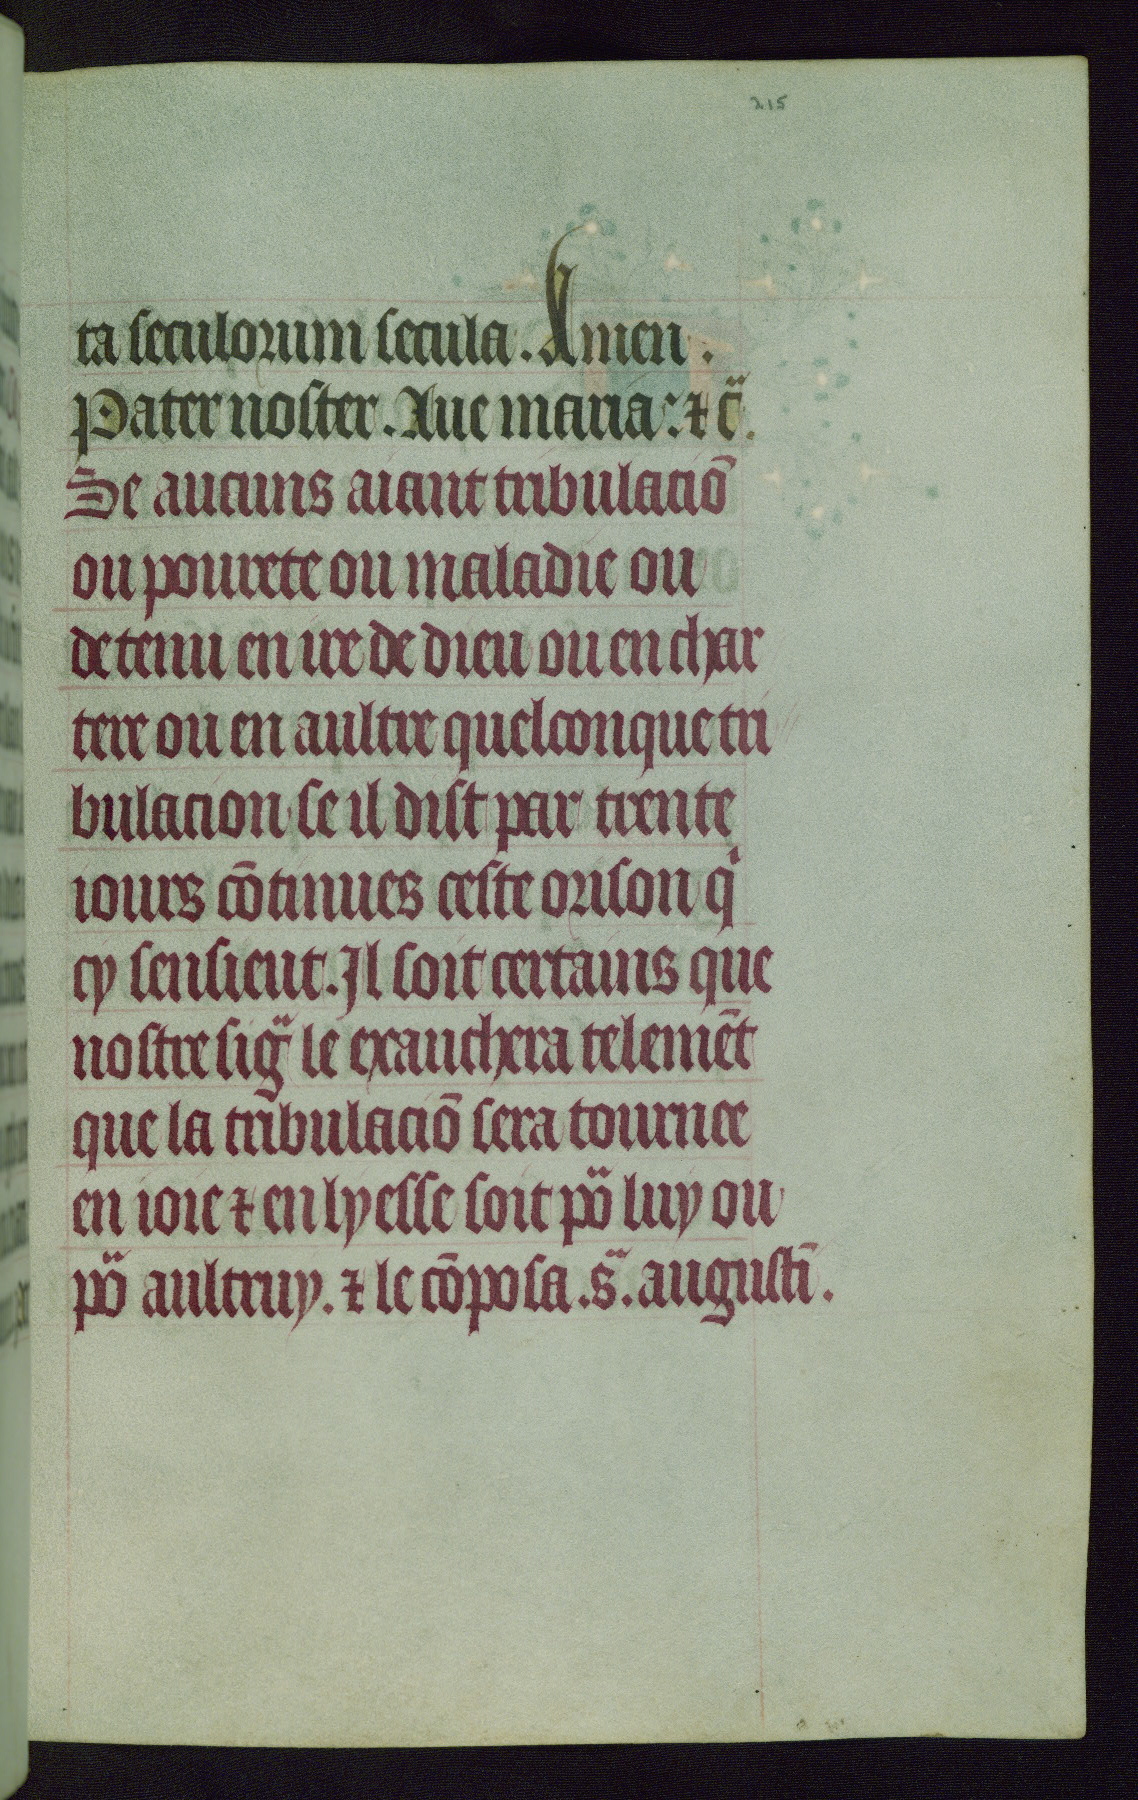 215
ta seculorum secula. Amen.
Pater noster. Aue maria: ⁊ c̃.
Se aucuns aiant tribulaciō
ou pourete ou maladie ou
detenu en ire de dieu ou en char
tere ou en aultre quelconque tri
bulacion se il dist par trente
iours cōtinues ceste orison qͥ
cy sensieut. Il soit certains que
nostre sigr̃ le exauchera telemēt
que la tribulaciō sera tournee
en ioie ⁊ en lyesse soit po᷑ luy ou
po᷑ aultruy. ⁊ le cōposa .s᷑. augustī.